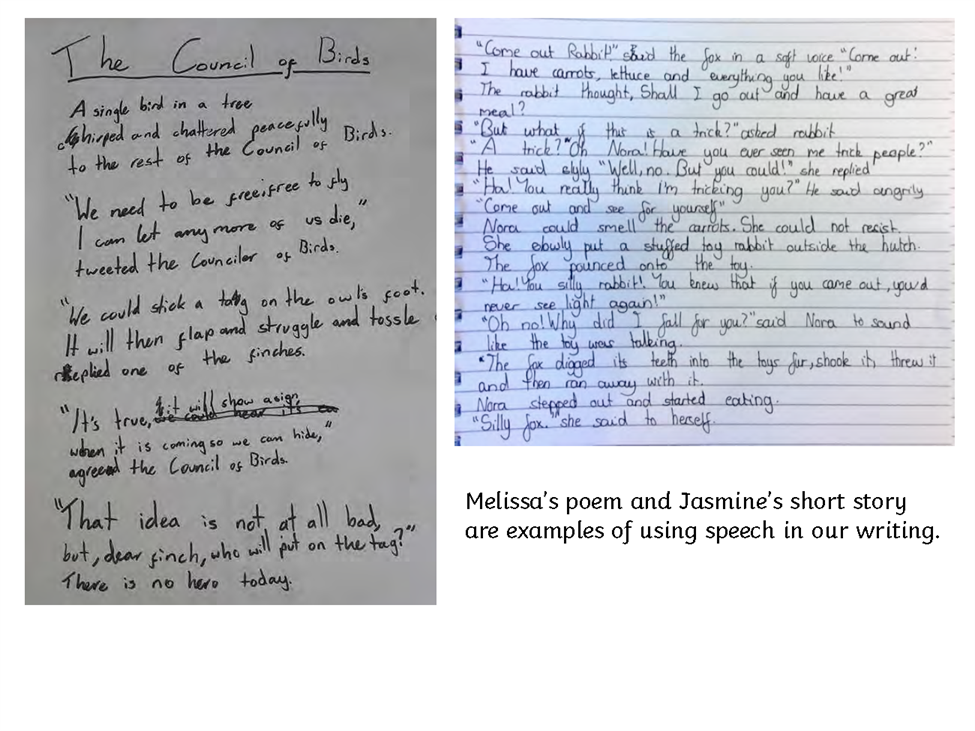 The Council of Birds
A single bird in a tree
chirped and chattered peacefully
to the rest of the Council of Birds.
"We need to be free, free to fly
I can let any more of us die,"
tweeted the Counciler of Birds.
"We could stick a tag on the owl's foot.
It will then flap and struggle and tossle
replied one of the finches.
"It's true, it will show a sign,
when it is coming so we can hide,"
agreed the Council of Birds.
"That idea is not at all bad,
but, dear finch, who will put on the tag?"
There is no hero today.
"Come out Rabbit!" said the fox in a soft voice "Come out!
I have carrots, lettuce and everything you like!"
The rabbit thought, Shall I go out and have a great
meal?
"But what if this is a trick?" asked rabbit
"A trick?" "Oh Nora! Have you ever seen me trick people?"
He said slyly "Well, no. But you could!" she replied
"Ha! You really think I'm tricking you?" He said angrily
"Come out and see for yourself"
Nora could smell the carrots. She could not resist.
She slowly put a stuffed toy rabbit outside the hutch.
The fox pounced onto the toy.
"Ha! You silly rabbit! You knew that if you came out, you'd
never see light again!"
"Oh no! Why did I fall for you?" said Nora to sound
like the toy was talking.
"The fox digged its teeth into the toys fur, shook it, threw it
and then ran away with it.
Nora stepped out and started eating.
"Silly fox." she said to herself.
Melissa's poem and Jasmine's short story
are examples of using speech in our writing.